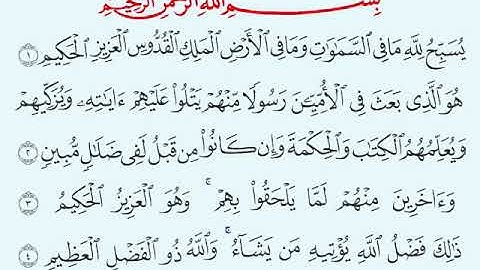 بِسْمِ اللَّهِ الرَّحْمَٰنِ الرَّحِيمِ
يُسَبِّحُ لِلَّهِ مَا فِي السَّمَاوَاتِ وَمَا فِي الْأَرْضِ الْمَلِكِ الْقُدُّوسِ الْعَزِيزِ الْحَكِيمِ ١
هُوَ الَّذِي بَعَثَ فِي الْأُمِّيِّـۧنَ رَسُولًا مِنْهُمْ يَتْلُوا۟ عَلَيْهِمْ ءَايَاتِهِۦ وَيُزَكِّيهِمْ
وَيُعَلِّمُهُمُ الْكِتَابَ وَالْحِكْمَةَ وَإِنْ كَانُوا۟ مِنْ قَبْلُ لَفِي ضَلَالٍ مُبِينٍ ٢
وَءَاخَرِينَ مِنْهُمْ لَمَّا يَلْحَقُوا۟ بِهِمْ ۚ وَهُوَ الْعَزِيزُ الْحَكِيمُ ٣
ذَٰلِكَ فَضْلُ اللَّهِ يُؤْتِيهِ مَن يَشَاءُ ۚ وَاللَّهُ ذُو الْفَضْلِ الْعَظِيمِ ٤